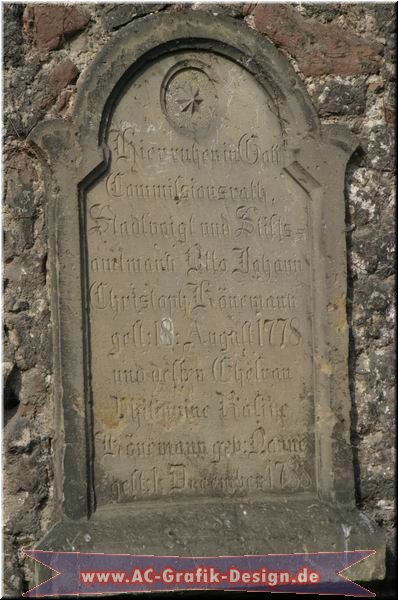 Hier ruhen in Gott
Commissionsrath,
Stadtvoigt und Stifts-
amtmann Otto Johann
Christoph Könemann
gest: 18: August 1778
und dessen Ehefrau
Könemann geb:
gest: December
www.AC-Grafik-Design.de